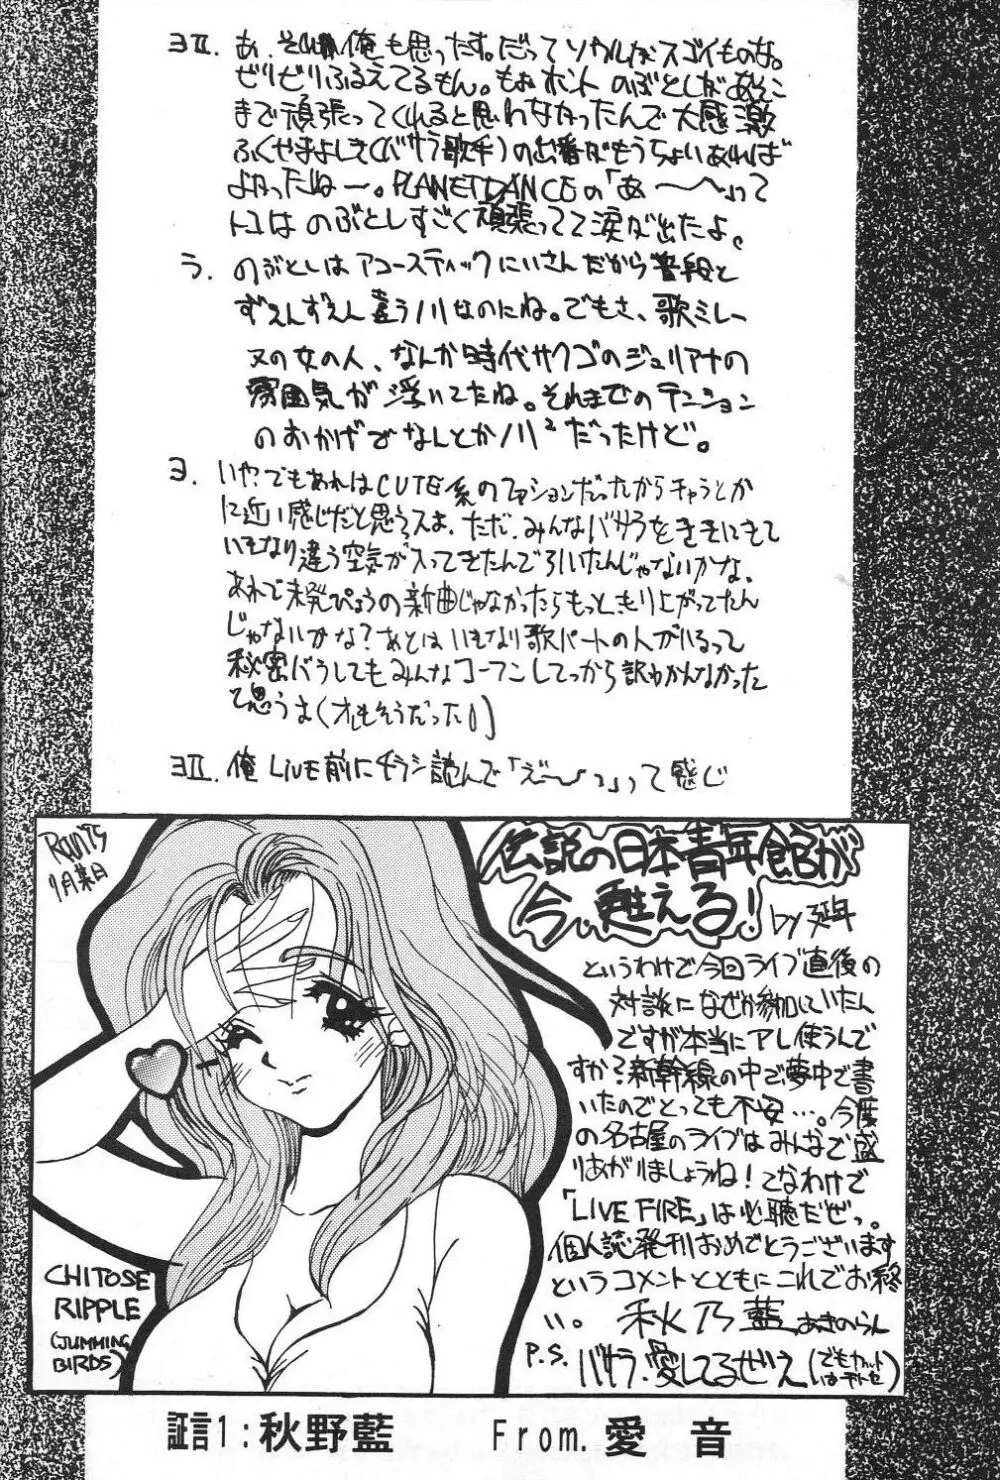 ヨII. あ、それ俺も思ったす。だってソウルがスゴイものな。
ビリビリふるえてるもん。もぉホント のぶとしがあそこ
まで頑張ってくれると思わなかったんで大感激
ふくやまよしき(バサラ歌手)の出番がもうちょいあれば
よかったねー。PLANET DANCEの「あ〜〜」って
トコは のぶとしすごく頑張ってて涙が出たよ。
う. のぶとしはアコースティックにいさんだから普段と
ずぇんずぇん違うノリなのにね。でもさ、歌ミレー
ヌの女の人、なんか時代サクゴのジュリアナの
雰囲気が浮いてたね。それまでのテンション
のおかげでなんとかノリ2だったけど。
ヨ. いや?でもあれはCUTE系のファションだったからキャラとか
に近い感じだと思うスよ、ただ、みんなバサラをききにきて
いきなり違う空気が入ってきたんで引いたんじゃないかな、
あれで未発ぴょうの新曲じゃなかったらもっともり上がってたん
じゃないかな?あとはいきなり歌パートの人がいるって
秘密バラしてもみんなコーフンしてっから訳わかんなかった
て思うよ(オレもそうだった!)
ヨII. 俺LIVE前にチラシ読んで「え〜〜っ」って感じ
伝説の日本青年館が
今、甦える!
by 延年
というわけで今回ライブ直後の
対談になぜか参加していたん
ですが本当にアレ使うんで
すか?新幹線の中で夢中で書
いたのでとっても不安…。今度
の名古屋のライブはみんなで盛
りあがりましょうね!てなわけで
「LIVE FIRE」は必聴だぜっ。
個人誌発刊おめでとうございます
というコメントとともにこれでお終
い。秋乃藍 あきのらん
P.S. バサラ、愛してるぜぃえ
CHITOSE
RIPPLE
(JUMMING
BIRDS)
証言1:秋野藍 From.愛音